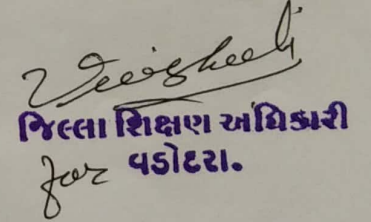 જિલ્લા શિક્ષણ અધિકારી
for વડોદરા.